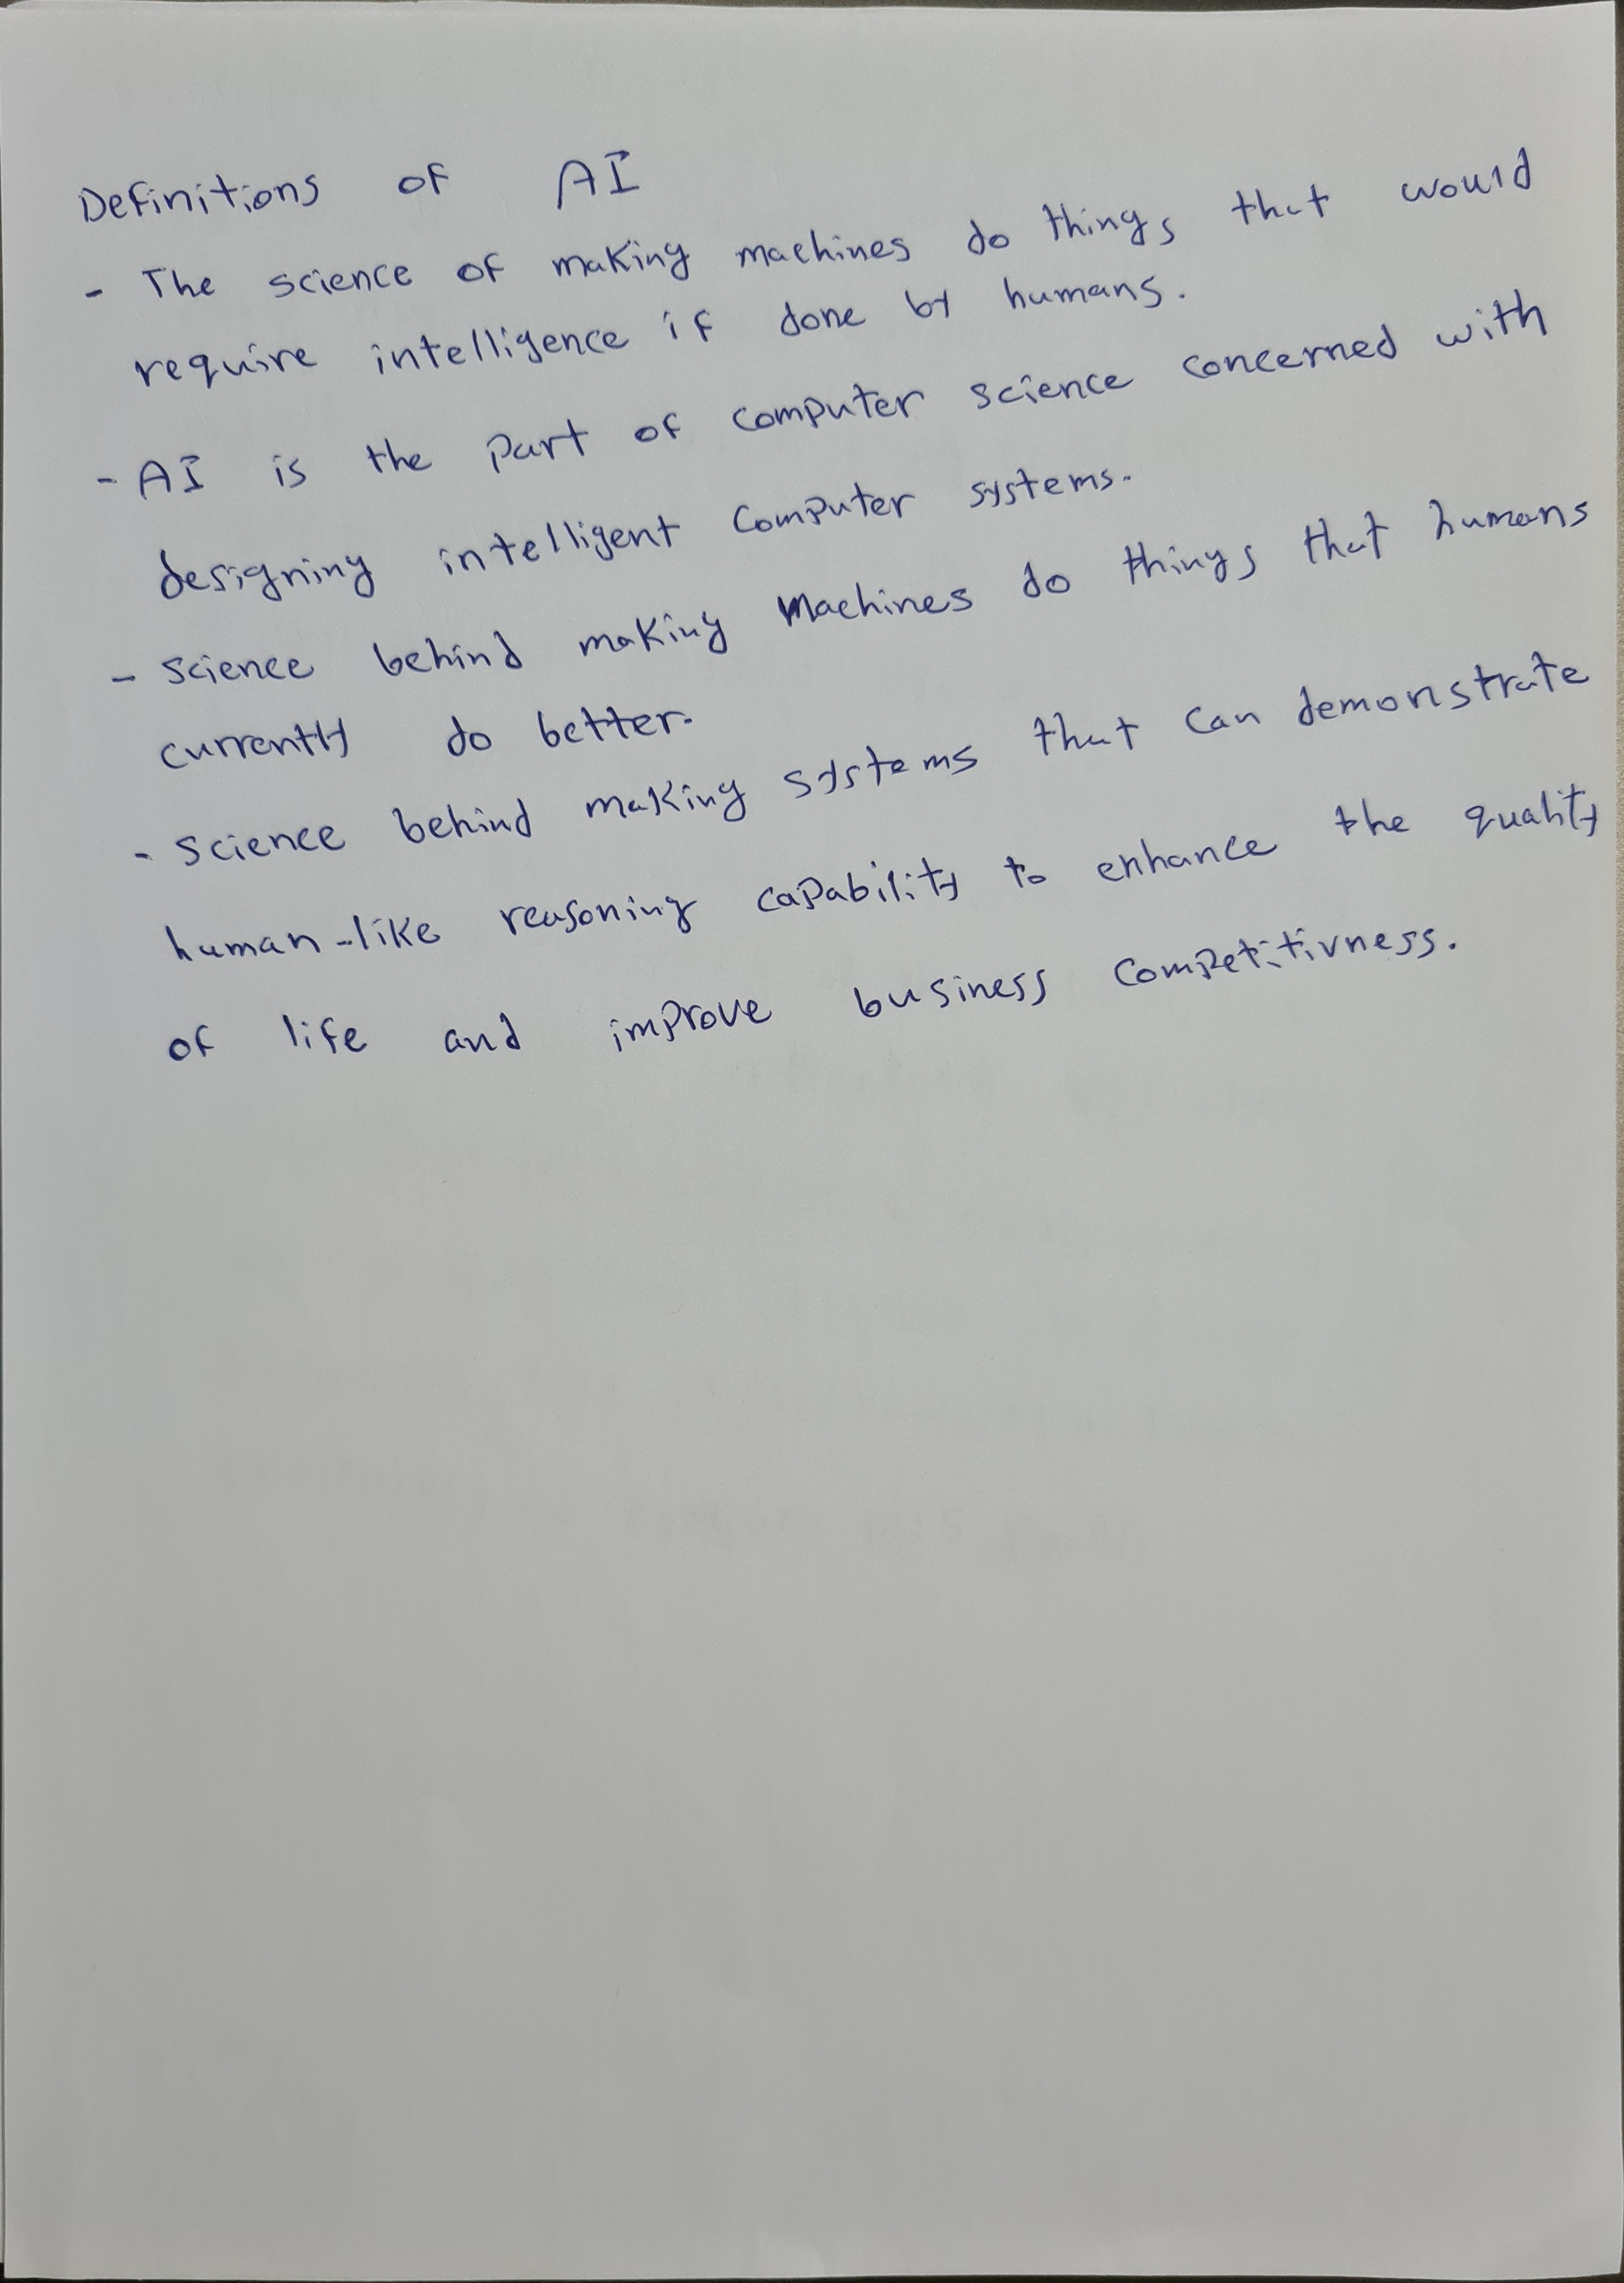 Definitions of AI
- The science of making machines do things that would
require intelligence if done by humans.
- AI is the part of computer science concerned with
designing intelligent computer systems.
- science behind making machines do things that humans
currently do better.
- science behind making systems that can demonstrate
human-like reasoning capability to enhance the quality
of life and improve business competitivness.